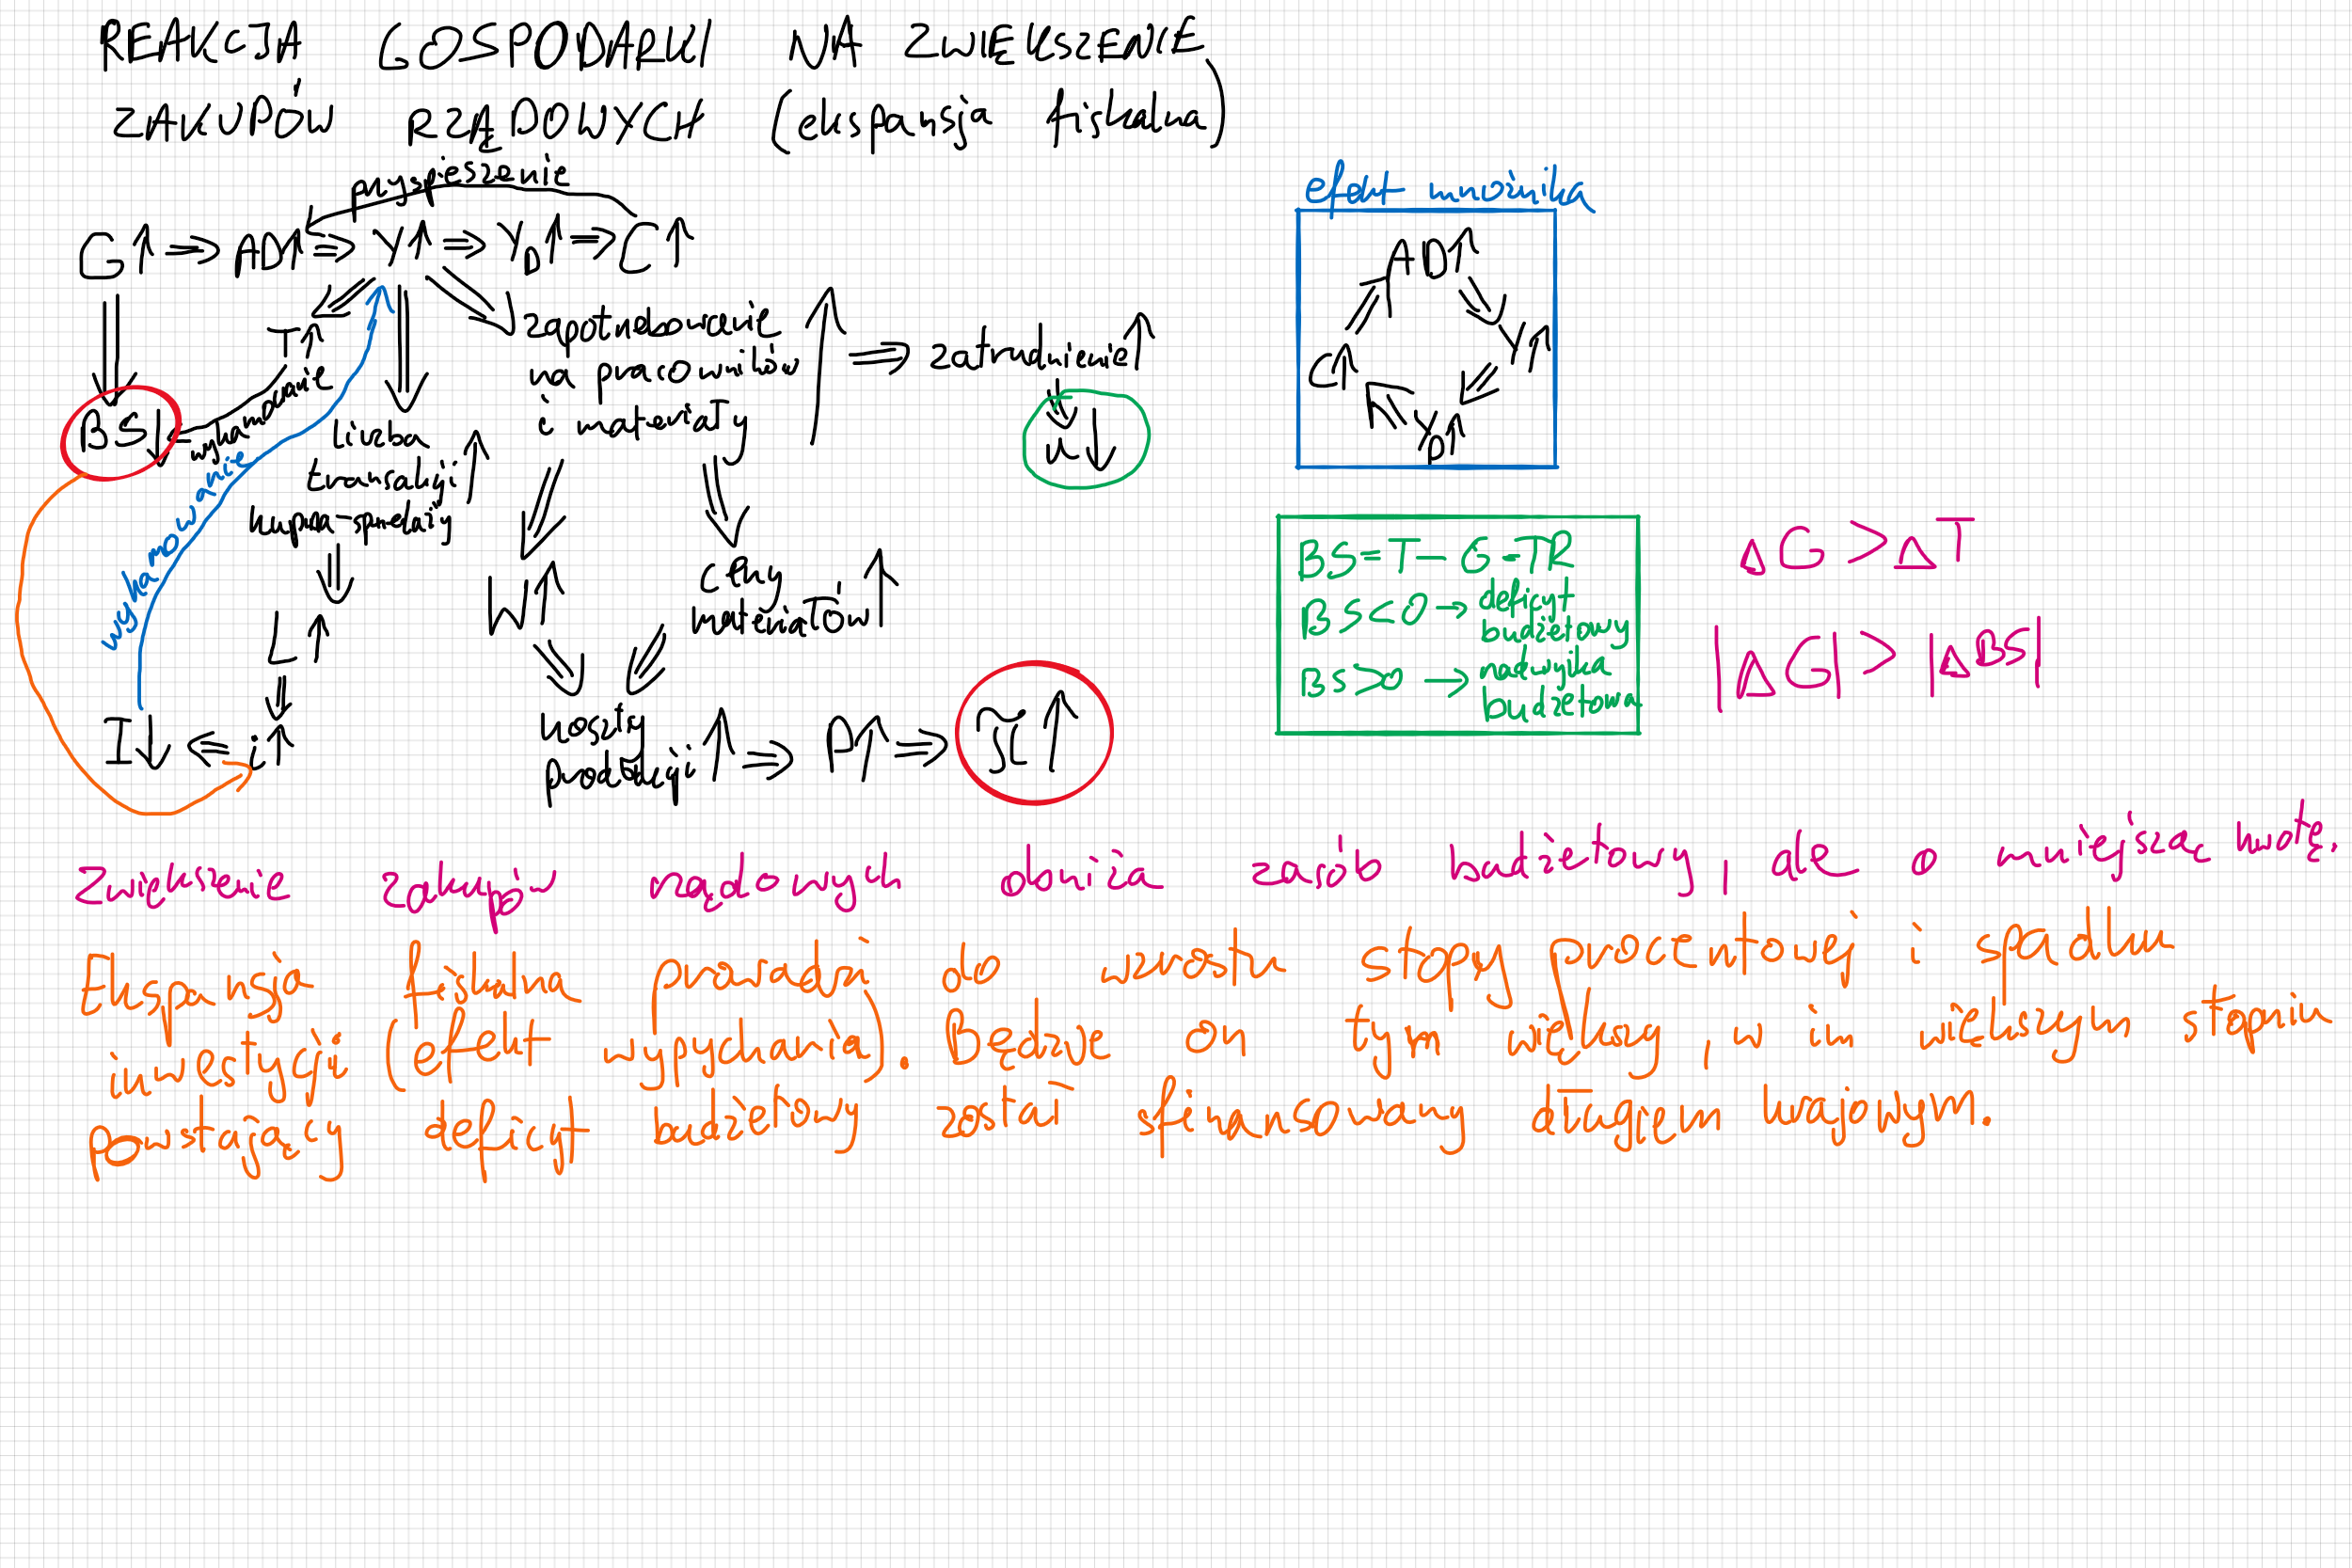 REAKCJA GOSPODARKI NA ZWIĘKSZENIE
ZAKUPÓW RZĄDOWYCH (ekspansja fiskalna)
przyspieszenie
G↑ ⇒ AD↑ ⇒ Y↑ ⇒ Y_D↑ ⇒ C↑
T↑
BS↓
wyhamowanie
wyhamowanie
liczba
transakcji ↑
kupna-sprzedaży
L↑
I↓ ⇐ i↑
zapotrzebowanie
na pracowników ↑ ⇒ zatrudnienie↑
i materiały
u↓
W↑
ceny
materiałów ↑
koszty
produkcji ↑ ⇒ P↑ ⇒ π↑
efekt mnożnika
AD↑
Y↑
C↑
Y_D↑
BS = T - G - TR
BS<0 → deficyt
budżetowy
BS>0 → nadwyżka
budżetowa
ΔG > ΔT
|ΔG| > |ΔBS|
Zwiększenie zakupów rządowych obniża zasób budżetowy, ale o mniejszą kwotę.
Ekspansja fiskalna prowadzi do wzrostu stopy procentowej i spadku
inwestycji (efekt wypychania). Będzie on tym większy, w im większym stopniu
powstający deficyt budżetowy został sfinansowany długiem krajowym.